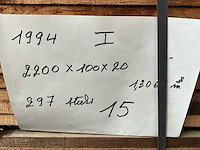 1994 I
2200 x 100 x 20
1306 m
297 stuks 15